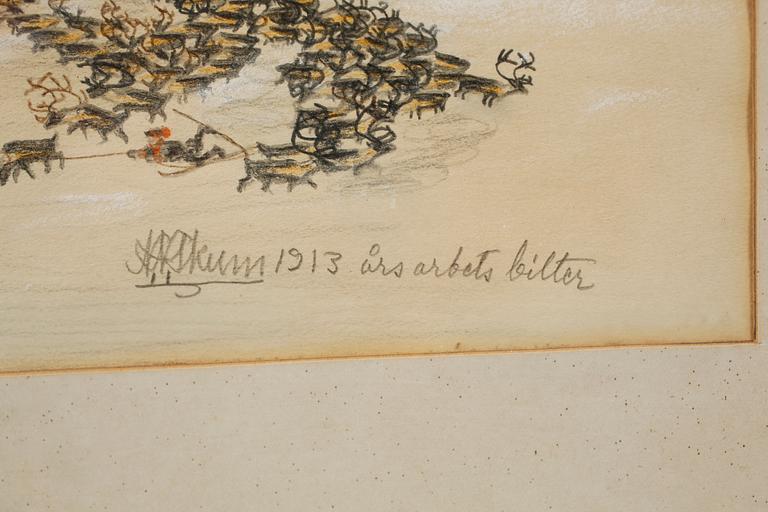 NRSkum 1913 års arbets bilter